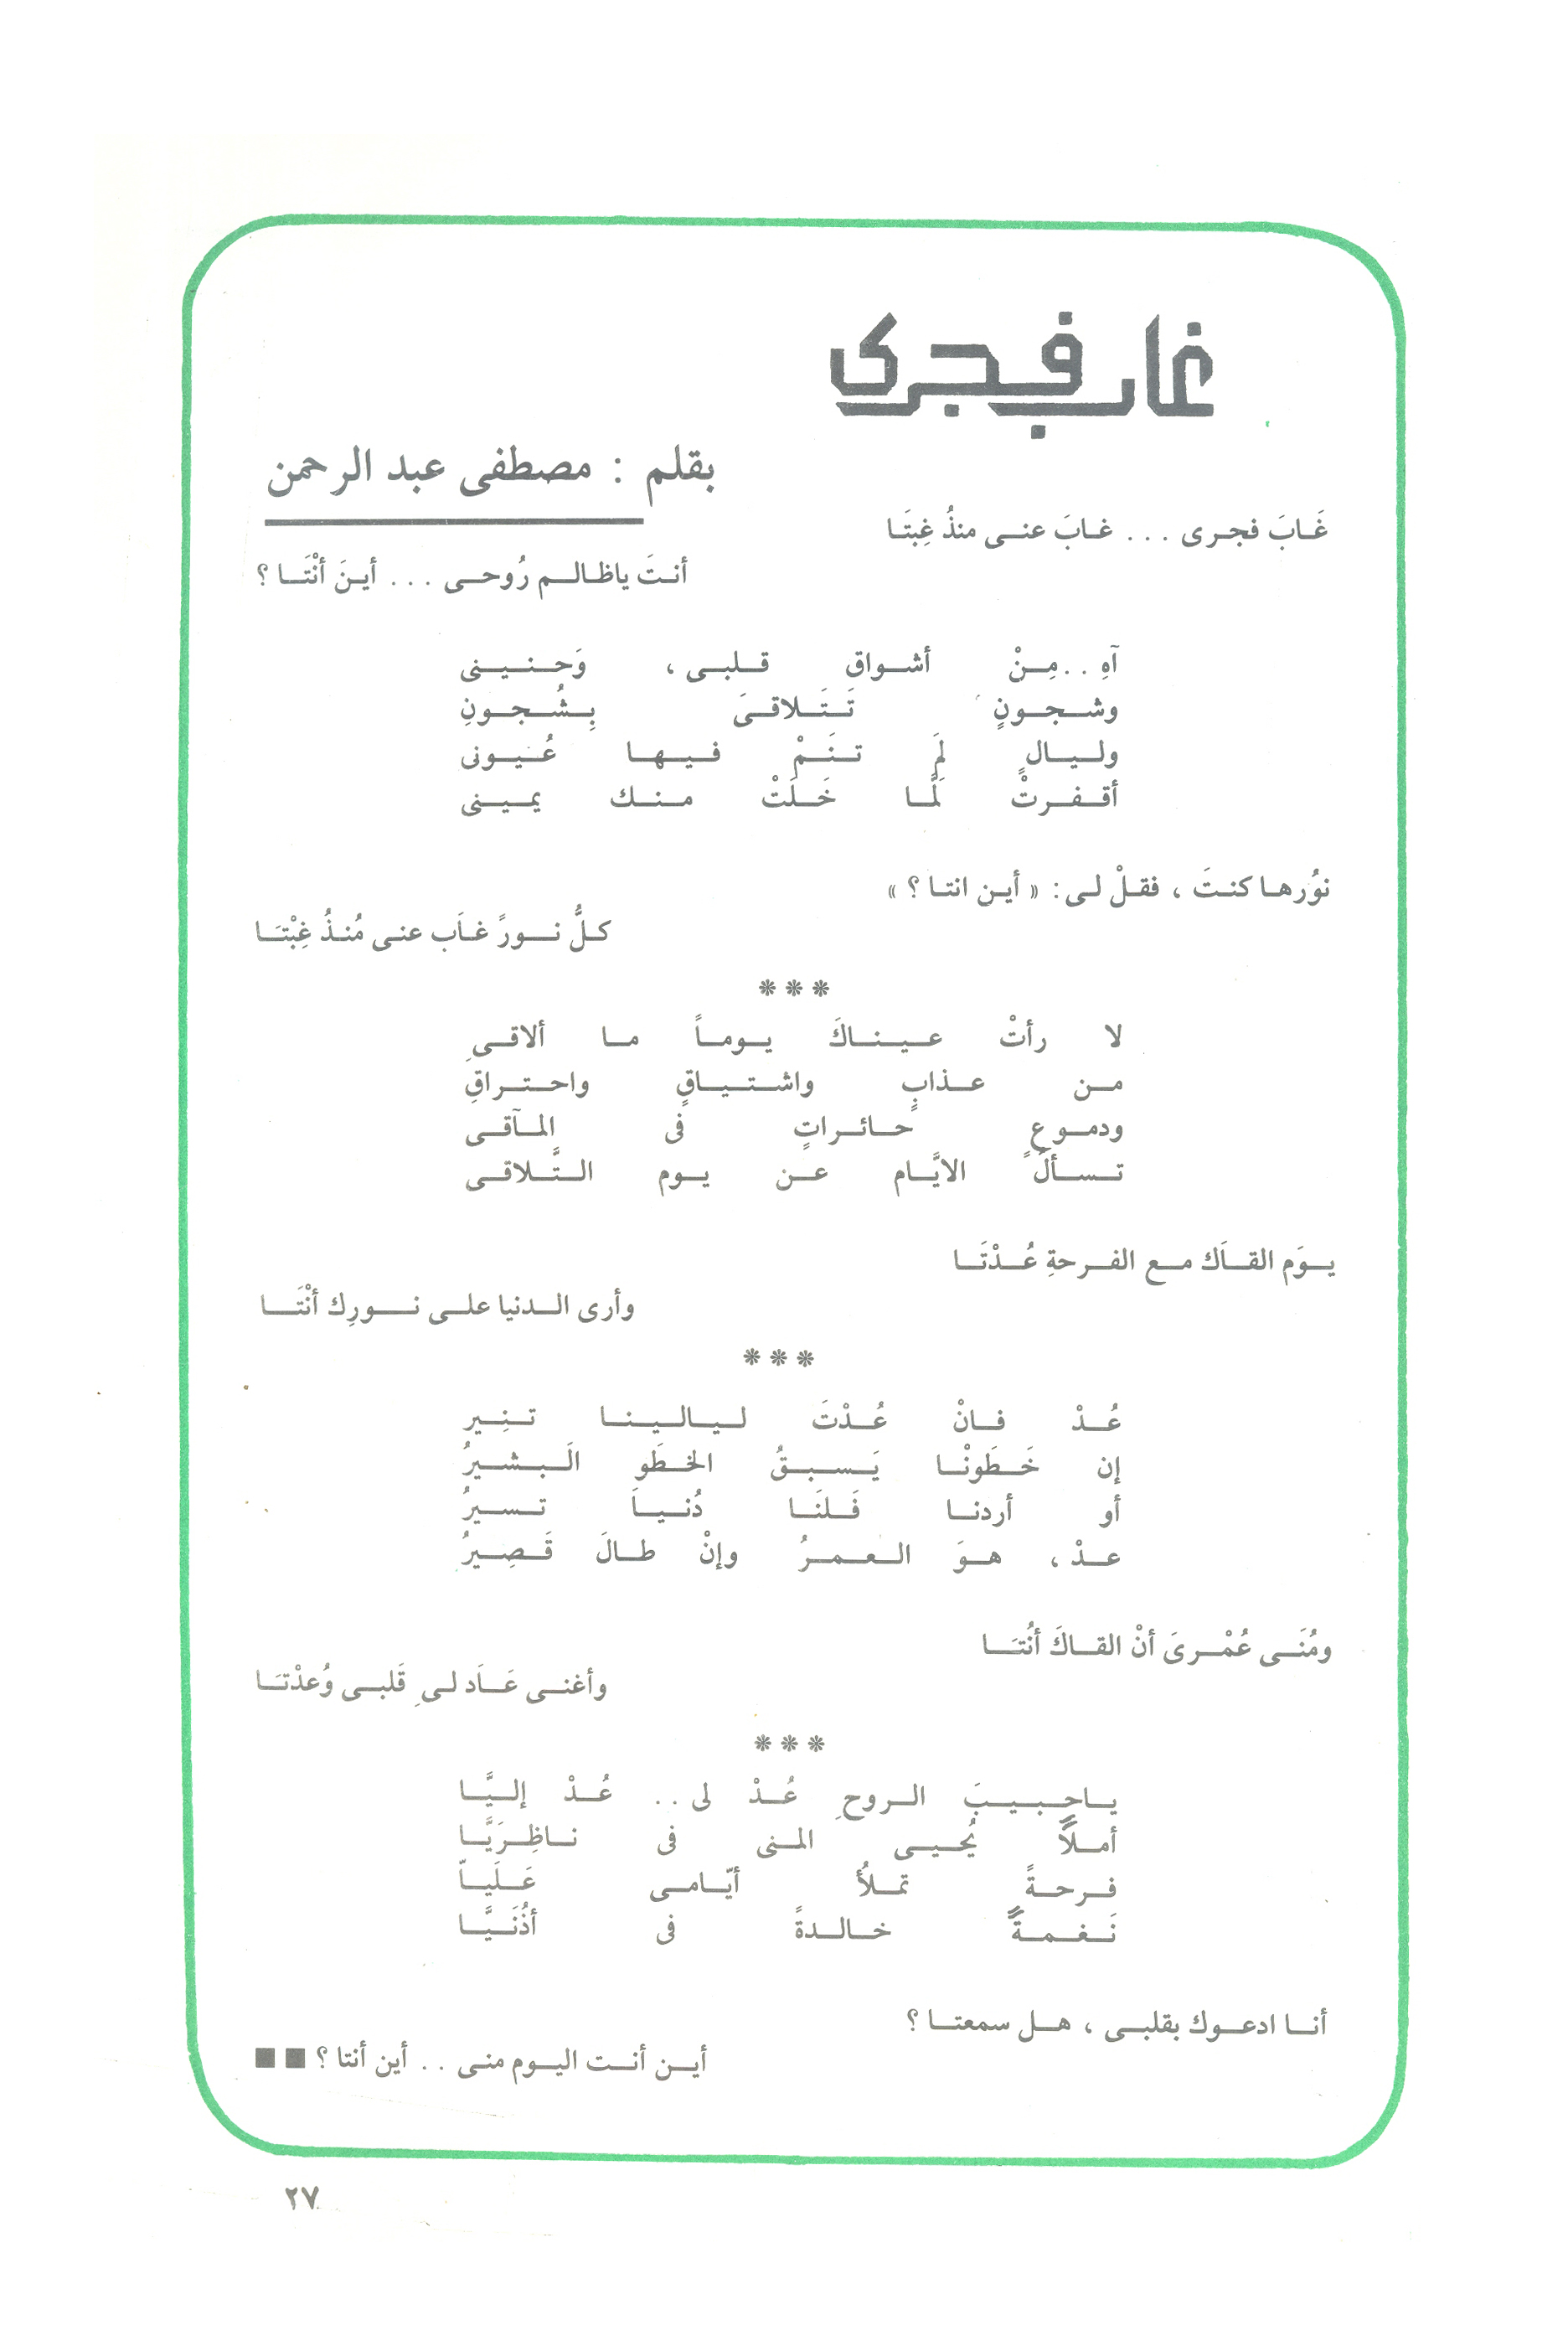 غاب فجرى
بقلم : مصطفى عبد الرحمن
غَابَ فجرى ... غابَ عنى منذُ غِبتَا
أنتَ ياظالم رُوحى ... أينَ أنْتَا ؟
آهِ .. مِنْ أشواق قلبى ، وَحنينى
وشجونٍ تَتَلاقىَ بِشُجونِ
وليالٍ لَم تنَمْ فيها عُيونى
أقفرتْ لَمَّا خَلَتْ منك يمينى
نوُرها كنتَ ، فقلْ لى : « أين انتا ؟ »
كلُّ نورً غاَب عنى مُنذُ غِبْتَا
***
لا رأتْ عيناكَ يوماً ما ألاقىِ
من عذابٍ واشتياقٍ واحتراقِ
ودموعٍ حائراتٍ فى المآقى
تسألُ الايَّام عن يوم التَّلاقى
يوَم القاَك مع الفرحةِ عُدْتَا
وأرى الدنيا على نورِك أنْتَا
***
عُدْ فانْ عُدْتَ ليالينا تنِير
إن خَطَونْا يَسبقُ الخطَو الَبشيرُ
أو أردنا فَلنَا دُنياَ تسيرُ
عدْ ، هوَ العمرُ وإنْ طالَ قَصِيرُ
ومُنَى عُمْرىَ أنْ القاكَ أنُتَا
وأغنى عَاَد لىِ قَلبى وُعدْتَا
***
ياحبيبَ الروحِ عُدْ لى .. عُدْ إليَّا
أملاً يُحيى المنى فى ناظِرَيَّا
فرحةً تملأُ أيّامى عَلَياّ
نَغمةً خالدةً فى أذُنَيَّا
أنا ادعوك بقلبى ، هل سمعتا ؟
أين أنت اليوم منى .. أين أنتا ؟ ■ ■
٢٧